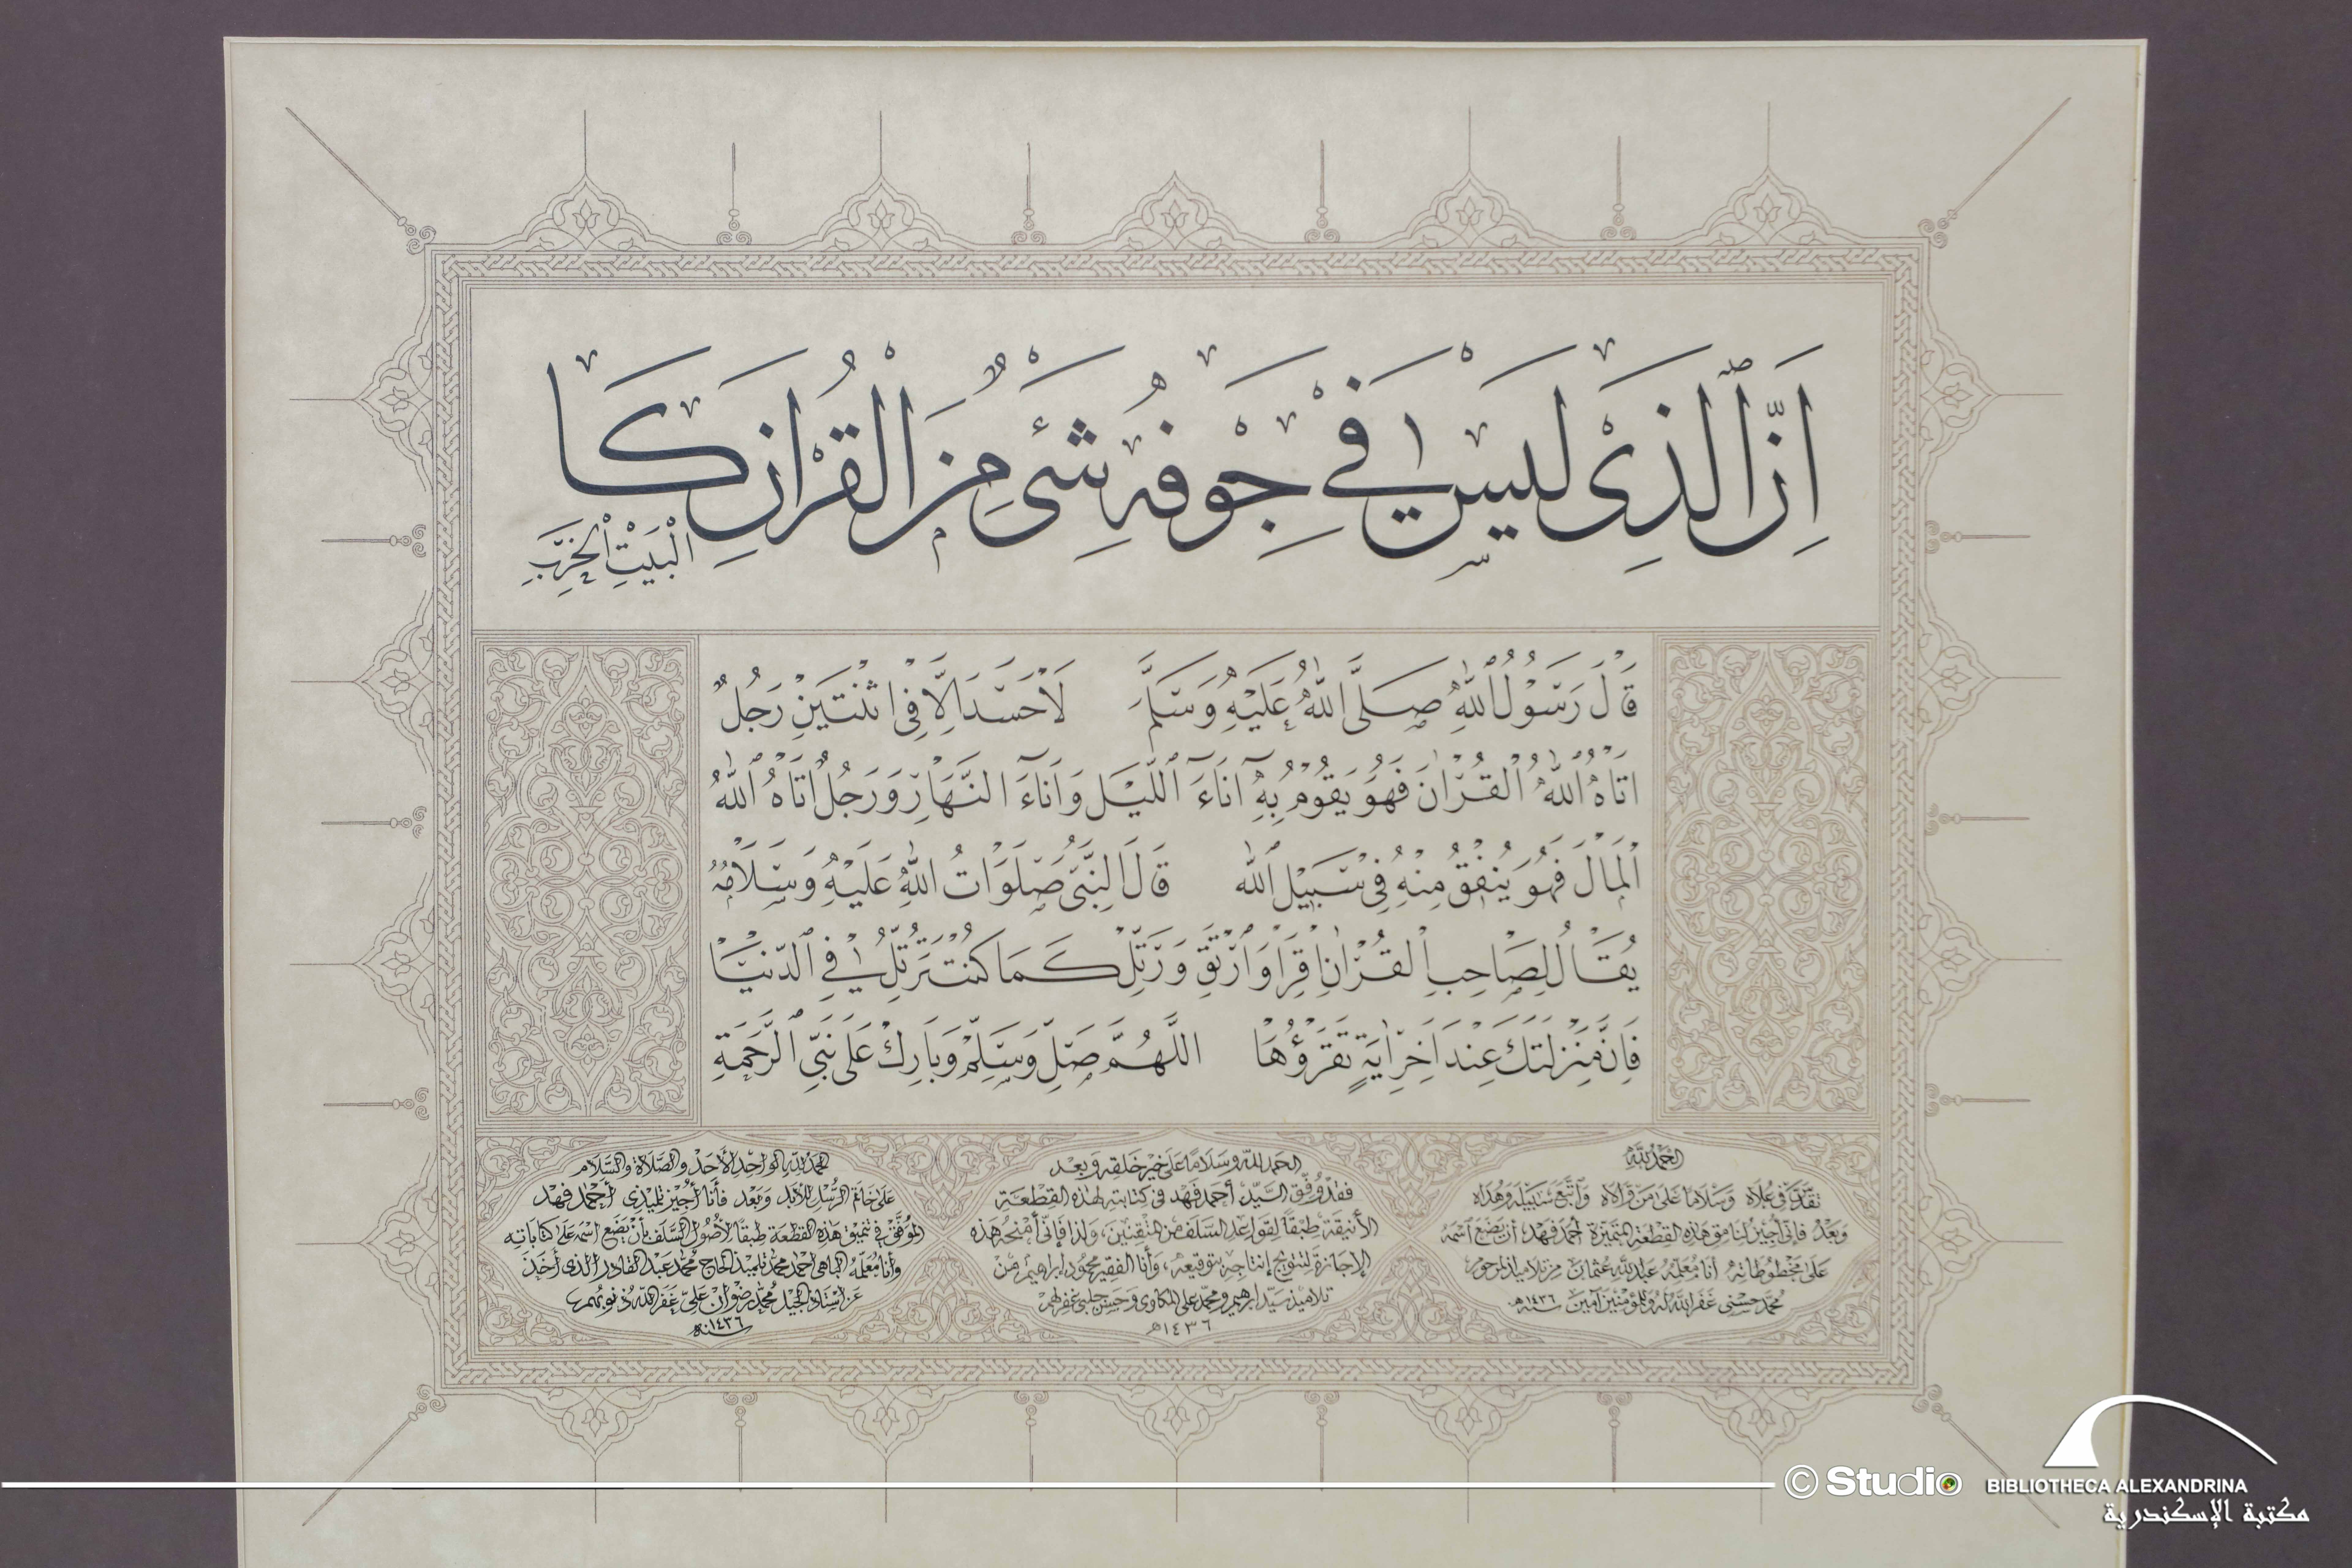 إِنَّ ٱلَّذِي لَيْسَ فِي جَوْفِهِ شَيْءٌ مِنَ الْقُرْاٰنِ كَا
الْبَيْتِ الْخَرِبِ
قَالَ رَسُوْلُ ٱللّٰهِ صَلَّى اللّٰهُ عَلَيْهِ وَسَلَّمَ لَا حَسَدَ اِلَّا فِى اثْنَتَيْنِ رَجُلٌ
اٰتَاهُ ٱللّٰهُ الْقُرْاٰنَ فَهُوَ يَقُوْمُ بِهٖ آنَاءَ ٱللَّيْلِ وَآنَاءَ النَّهَارِ وَرَجُلٌ اٰتَاهُ ٱللّٰهُ
الْمَالَ فَهُوَ يُنْفِقُ مِنْهُ فِى سَبِيْلِ ٱللّٰه قَالَ النَّبِىُّ صَلَوَاتُ اللّٰهِ عَلَيْهِ وَسَلَامُهُ
يُقَالُ لِصَاحِبِ الْقُرْاٰنِ اِقْرَأْ وَارْتَقِ وَرَتِّلْ كَمَا كُنْتَ تُرَتِّلُ فِي ٱلدُّنْيَا
فَاِنَّ مَنْزِلَتَكَ عِنْدَ اٰخِرِ اٰيَةٍ تَقْرَؤُهَا اللّٰهُمَّ صَلِّ وَسَلِّمْ وَبَارِكْ عَلَى نَبِيِّ ٱلرَّحْمَةِ
الحمد لله
تقدّس في علاه وسلاما على من والاه واتبع سبيله وهداه
وبعد فإني أجيز لنامق هذه القطعة المتميزة أحمد فهد أن يضع اسمه
على مخطوطاته أنا معلمه عبدالله عثمان من تلاميذ المرحوم
محمد حسني غفر الله له وللمؤمنين آمين سنة ١٤٣٦هـ
الحمد لله وسلاما على خير خلقه وبعد
فقد وفق السيد أحمد فهد في كتابته لهذه القطعة
الأنيقة طبقا لقواعد السلف من المتقنين، ولذا فإنى أمنحه هذه
الإجازة لتتويج إنتاجه بتوقيعه، وأنا الفقير محمود إبراهيم من
تلاميذ سيد إبراهيم ومحمد على المكاوى وحسن جلبي غفر لهم
١٤٣٦هـ
الحمد لله الواحد الأحد والصلاة والسلام
على خاتم الرسل للأبد وبعد فأنا أجيز تلميذي أحمد فهد
الموفق في تنميق هذه القطعة طبقا لأصول السلف بأن يضع اسمه على كتاباته
وأنا معلمه الباهى أحمد محمد تلميذ الحاج محمد عبد القادر الذى أخذ
عن استاذ الجيد محمد رضوان على غفر الله ذنوبهم
سنة ١٤٣٦هـ
© Studio
BIBLIOTHECA ALEXANDRINA
مكتبة الإسكندرية